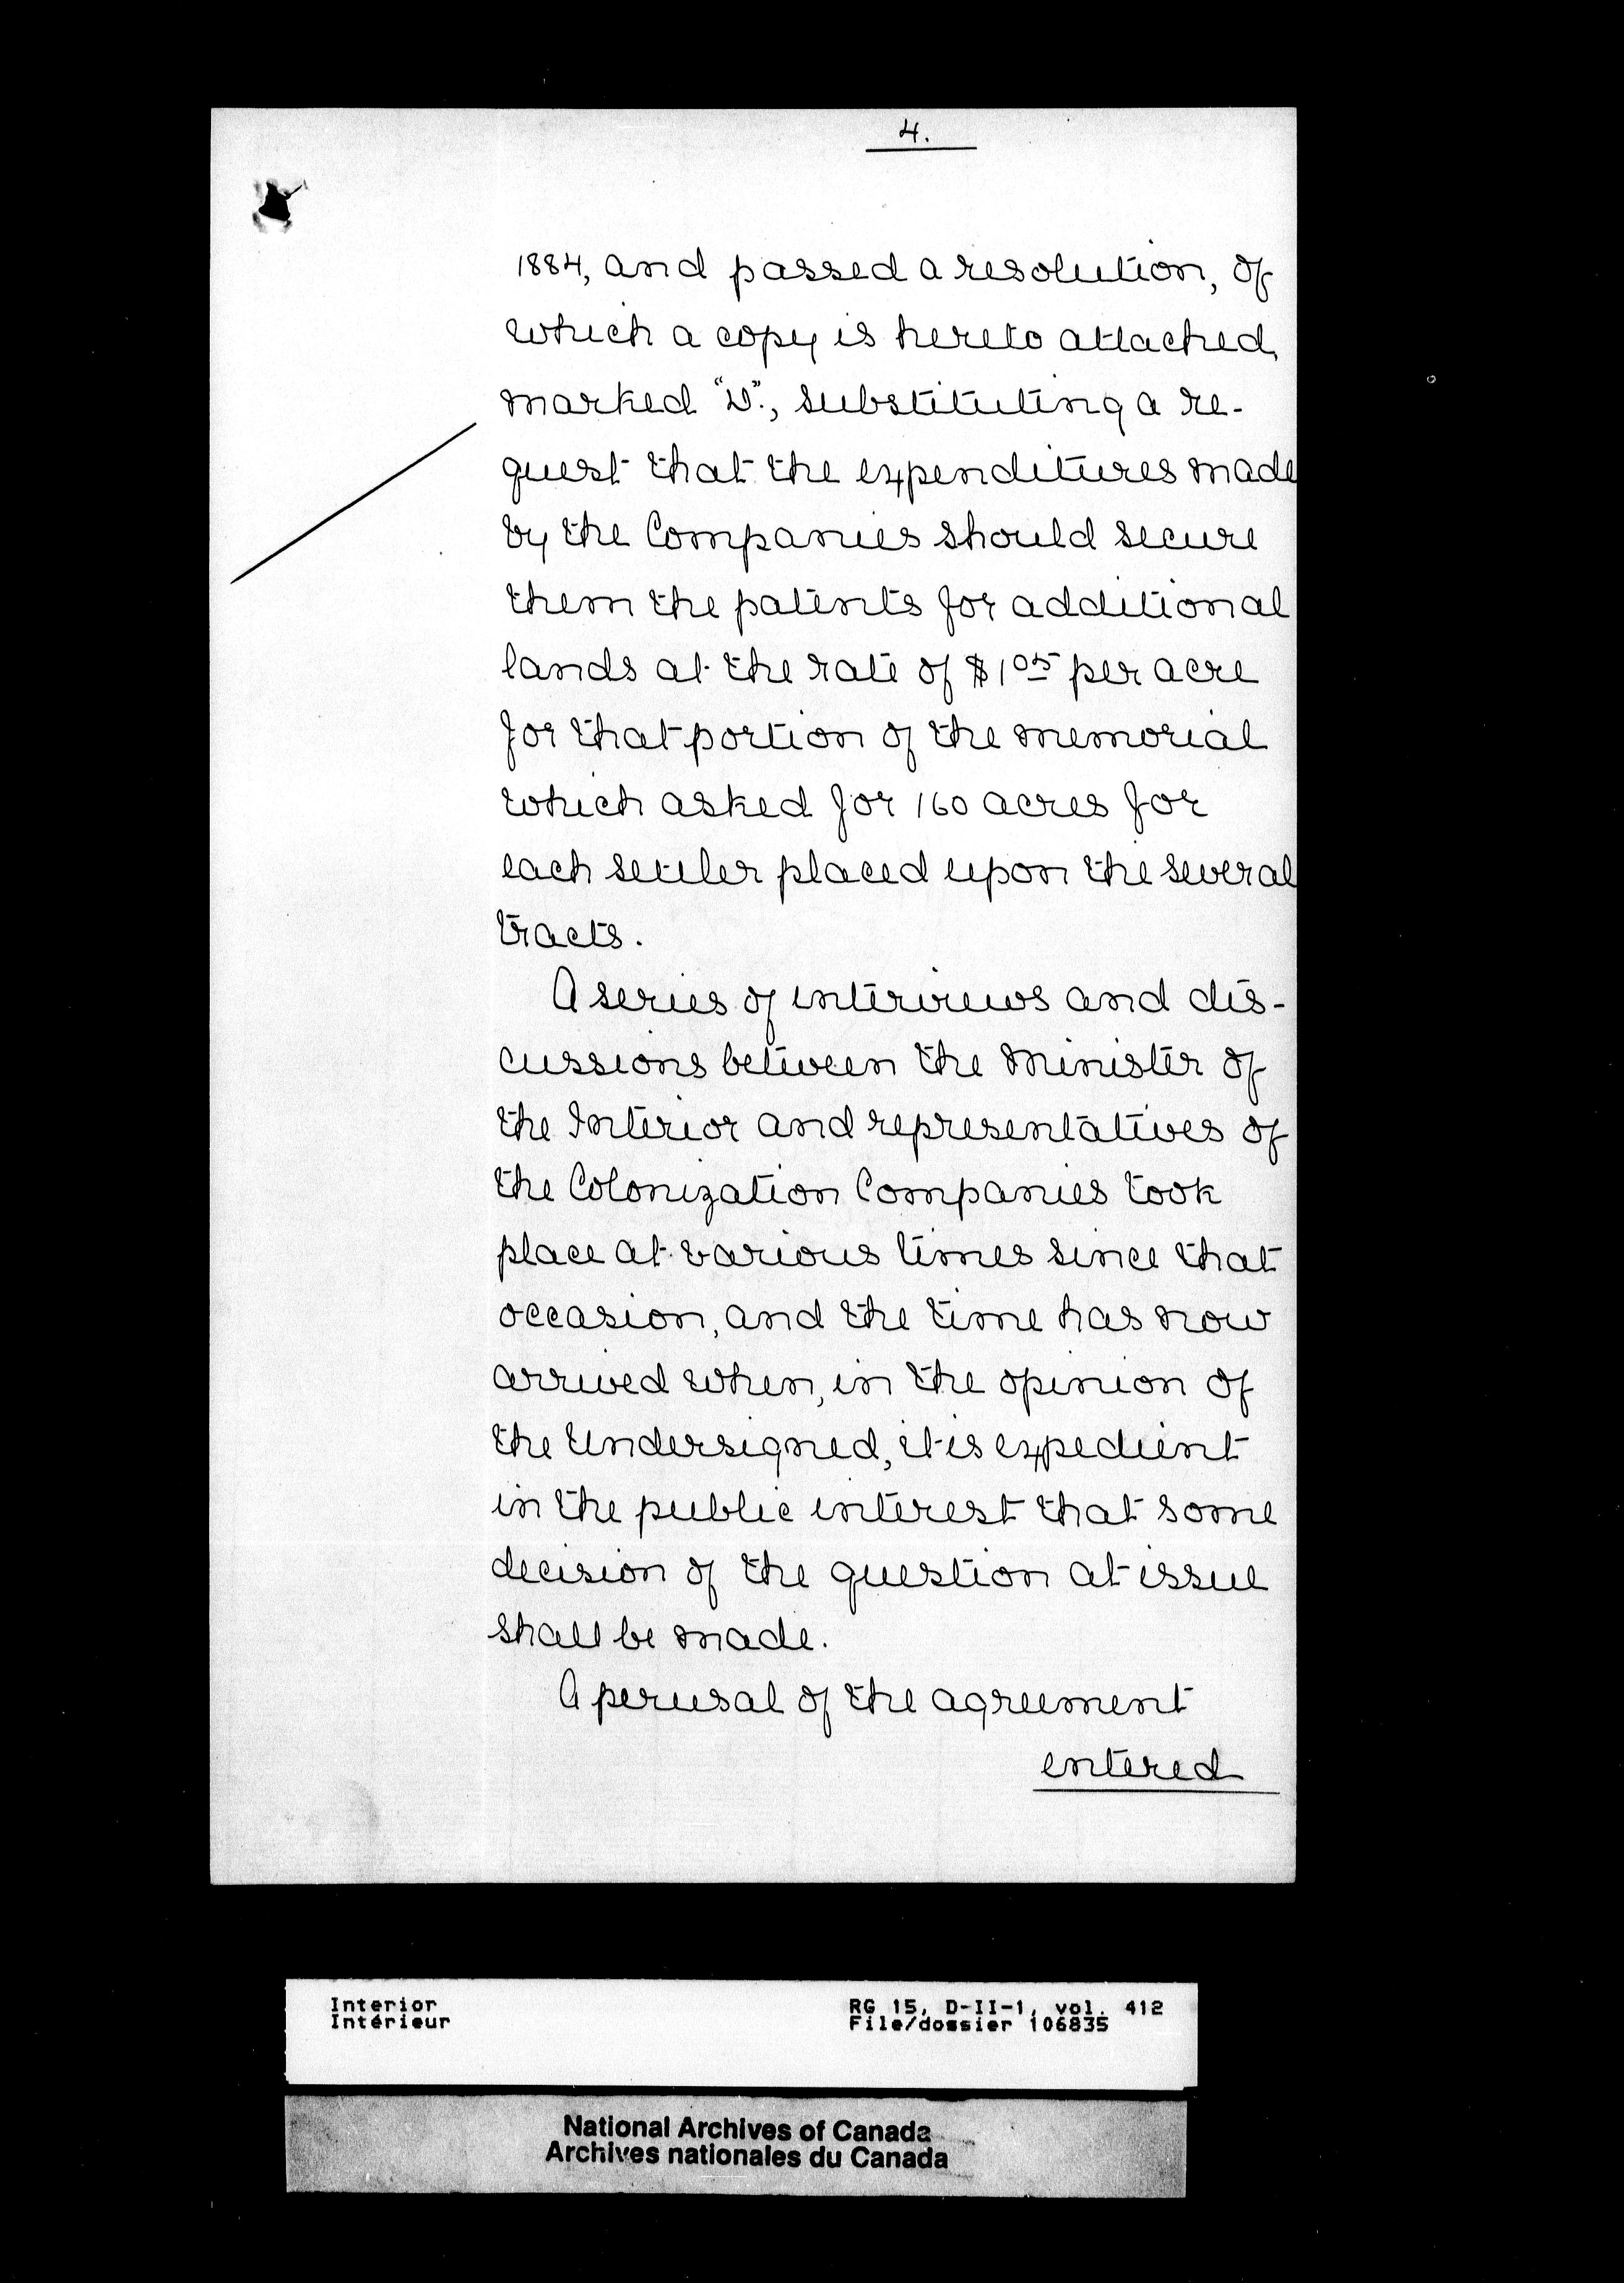 4.
1884, and passed a resolution, of
which a copy is hereto attached,
marked "D"., substituting a re-
quest that the expenditures made
by the Companies should secure
them the patents for additional
lands at the rate of $1 05 per acre
for that portion of the memorial
which asked for 160 acres for
each settler placed upon the several
tracts.
A series of interviews and dis-
cussions between the Minister of
the Interior and representatives of
the Colonization Companies took
place at various times since that
occasion, and the time has now
arrived when, in the opinion of
the Undersigned, it is expedient
in the public interest that some
decision of the question at issue
shall be made.
A perusal of the agreement
entered
Interior
Intérieur
RG 15, D-II-1, vol. 412
File/dossier 106835
National Archives of Canada
Archives nationales du Canada